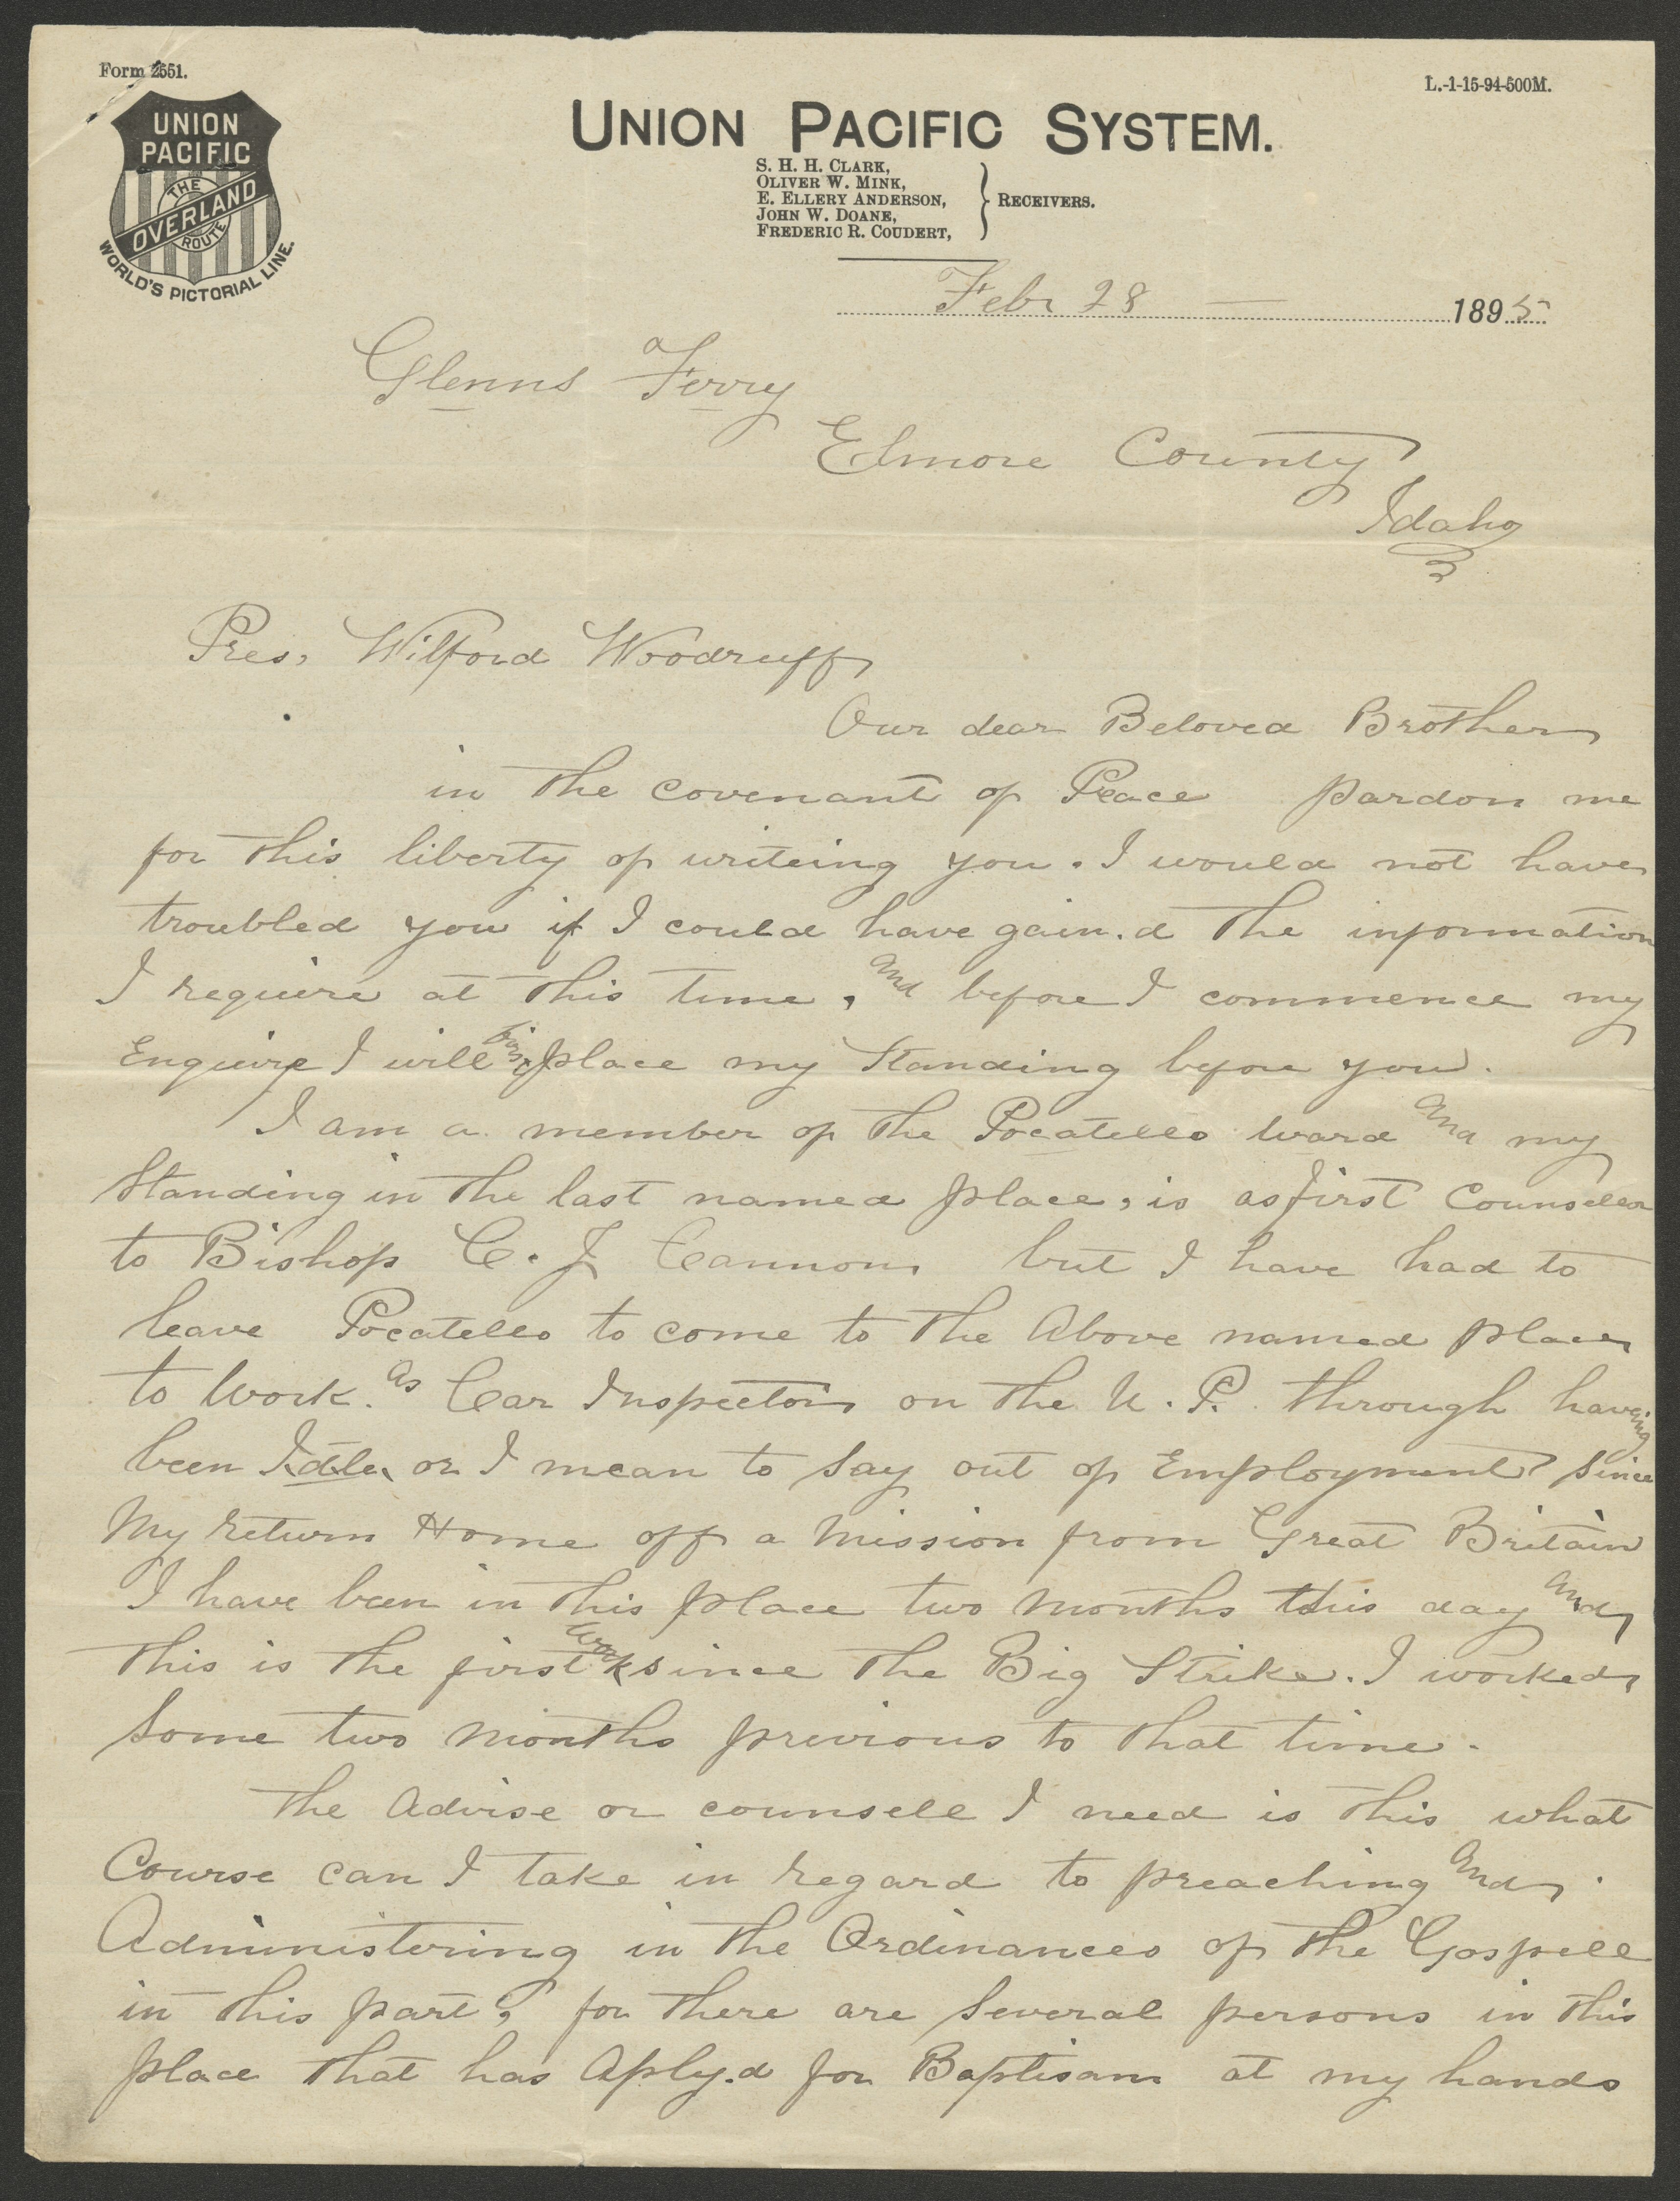 Form 2551.
L.-1-15-94-500M.
UNION
PACIFIC
THE
OVERLAND
ROUTE
WORLD'S PICTORIAL LINE.
UNION PACIFIC SYSTEM.
S. H. H. CLARK,
OLIVER W. MINK,
E. ELLERY ANDERSON,
JOHN W. DOANE,
FREDERIC R. COUDERT,
} RECEIVERS.
Febr 28 — 1895
Glenns Ferry
Elmore County
Idaho
Pres, Wilford Woodruff,
Our dear Beloved Brother
in the covenant of Peace pardon me
for this liberty of writeing you. I would not have
troubled you if I could have gain.d the information
I require at this time, and before I commence my
Enquire I will first place my Standing before you.
I am a member of the Pocatello ward and my
Standing in the last named place, is as first Counseler
to Bishop C. J Cannon but I have had to
leave Pocatello to come to the Above named place
to Work. as Car Inspector on the U. P. through having
been Idle, or I mean to say out of Employment since
My return Home off a Mission from Great Britain
I have been in this place two months this day and
this is the first work since the Big Strike. I worked
Some two months previous to that time.
the Advise or counsell I need is this what
Course can I take in regard to preaching and
Administering in the Ordinances of the Gospell
in this part? for there are Several persons in this
place that has Aply.d for Baptisam at my hands